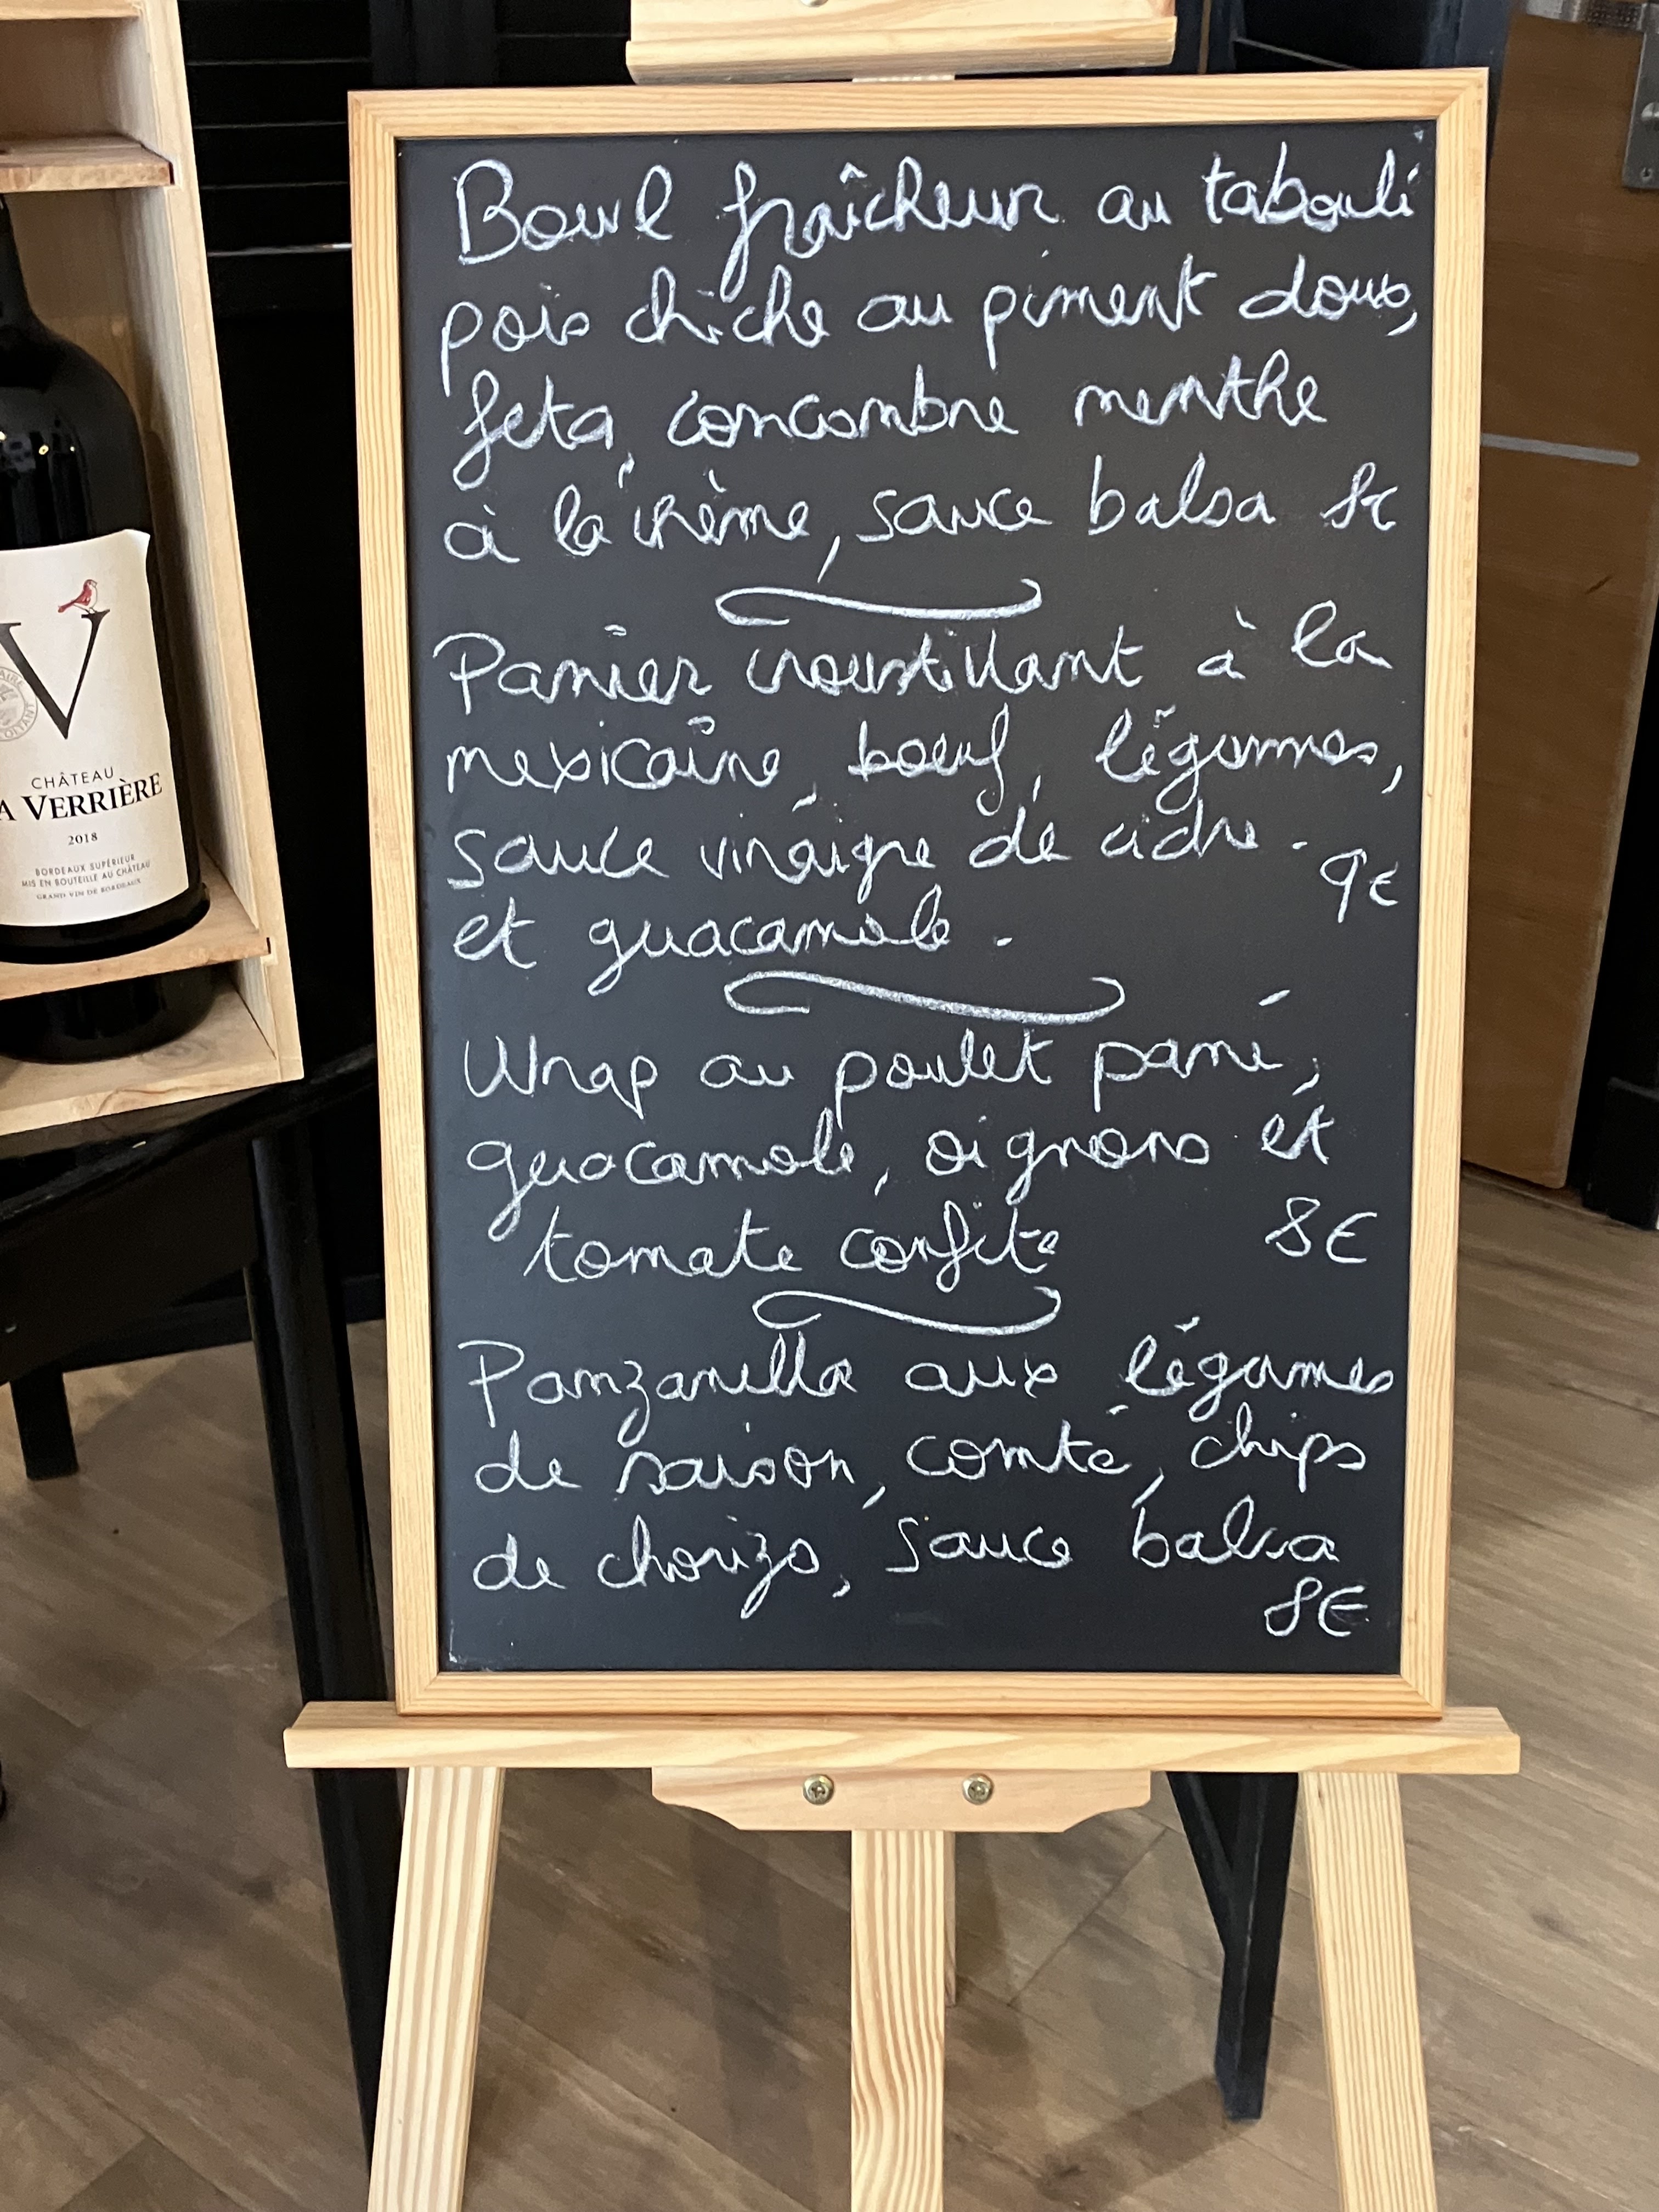 Bowl fraîcheur au taboulé
pois chiche au piment doux,
feta, concombre menthe
à la crème, sauce balsa 8€
Panier croustillant à la
mexicaine, boeuf, légumes,
sauce vinaigre de cidre.
9€
et guacamole.
Wrap au poulet pané,
guacamole, oignons et
tomate confite 8€
Panzanella aux légumes
de saison, comté, chips
de chorizo, sauce balsa
8€
V
CHÂTEAU
A VERRIÈRE
2018
BORDEAUX SUPÉRIEUR
MIS EN BOUTEILLE AU CHÂTEAU
GRAND VIN DE BORDEAUX